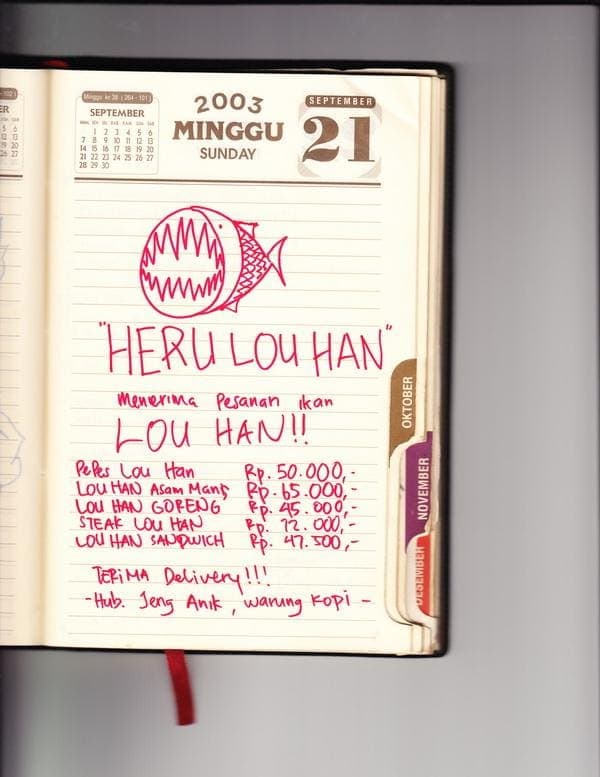 Minggu ke 38 ( 264 - 101 )
SEPTEMBER
1 2 3 4 5 6
7 8 9 10 11 12 13
14 15 16 17 18 19 20
21 22 23 24 25 26 27
28 29 30
2003
MINGGU
SUNDAY
SEPTEMBER
21
"HERU LOU HAN"
Menerima Pesanan ikan
LOU HAN!!
PePes Lou Han Rp. 50.000,-
LOU HAN Asam Manis Rp. 65.000,-
LOU HAN GORENG Rp. 45.000,-
STEAK LOU HAN Rp. 72.000,-
LOU HAN SANDWICH Rp. 47.500,-
TERIMA Delivery!!!
-Hub. Jeng Anik, warung kopi -
OKTOBER
NOVEMBER
DESEMBER